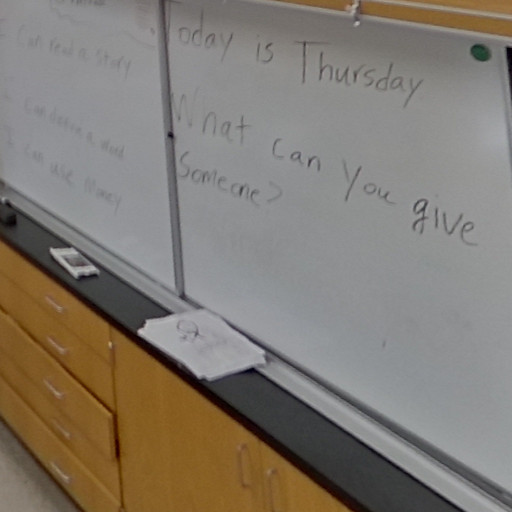 I can read a story
I can define a word
I can use money
Today is Thursday
What can you give
Someone?